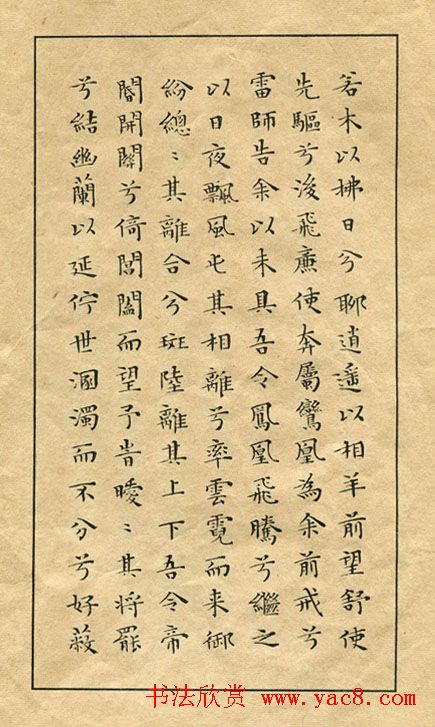 若木以拂日兮聊逍遙以相羊前望舒使
先驅兮後飛廉使奔屬鸞凰為余前戒兮
雷師告余以未具吾令鳳凰飛騰兮繼之
以日夜飄風屯其相離兮率雲霓而来御
紛總〻其離合兮斑陸離其上下吾令帝
閽開關兮倚閶闔而望予旹曖〻其將罷
兮結幽蘭以延佇世溷濁而不分兮好蔽
书法欣赏 www.yac8.com